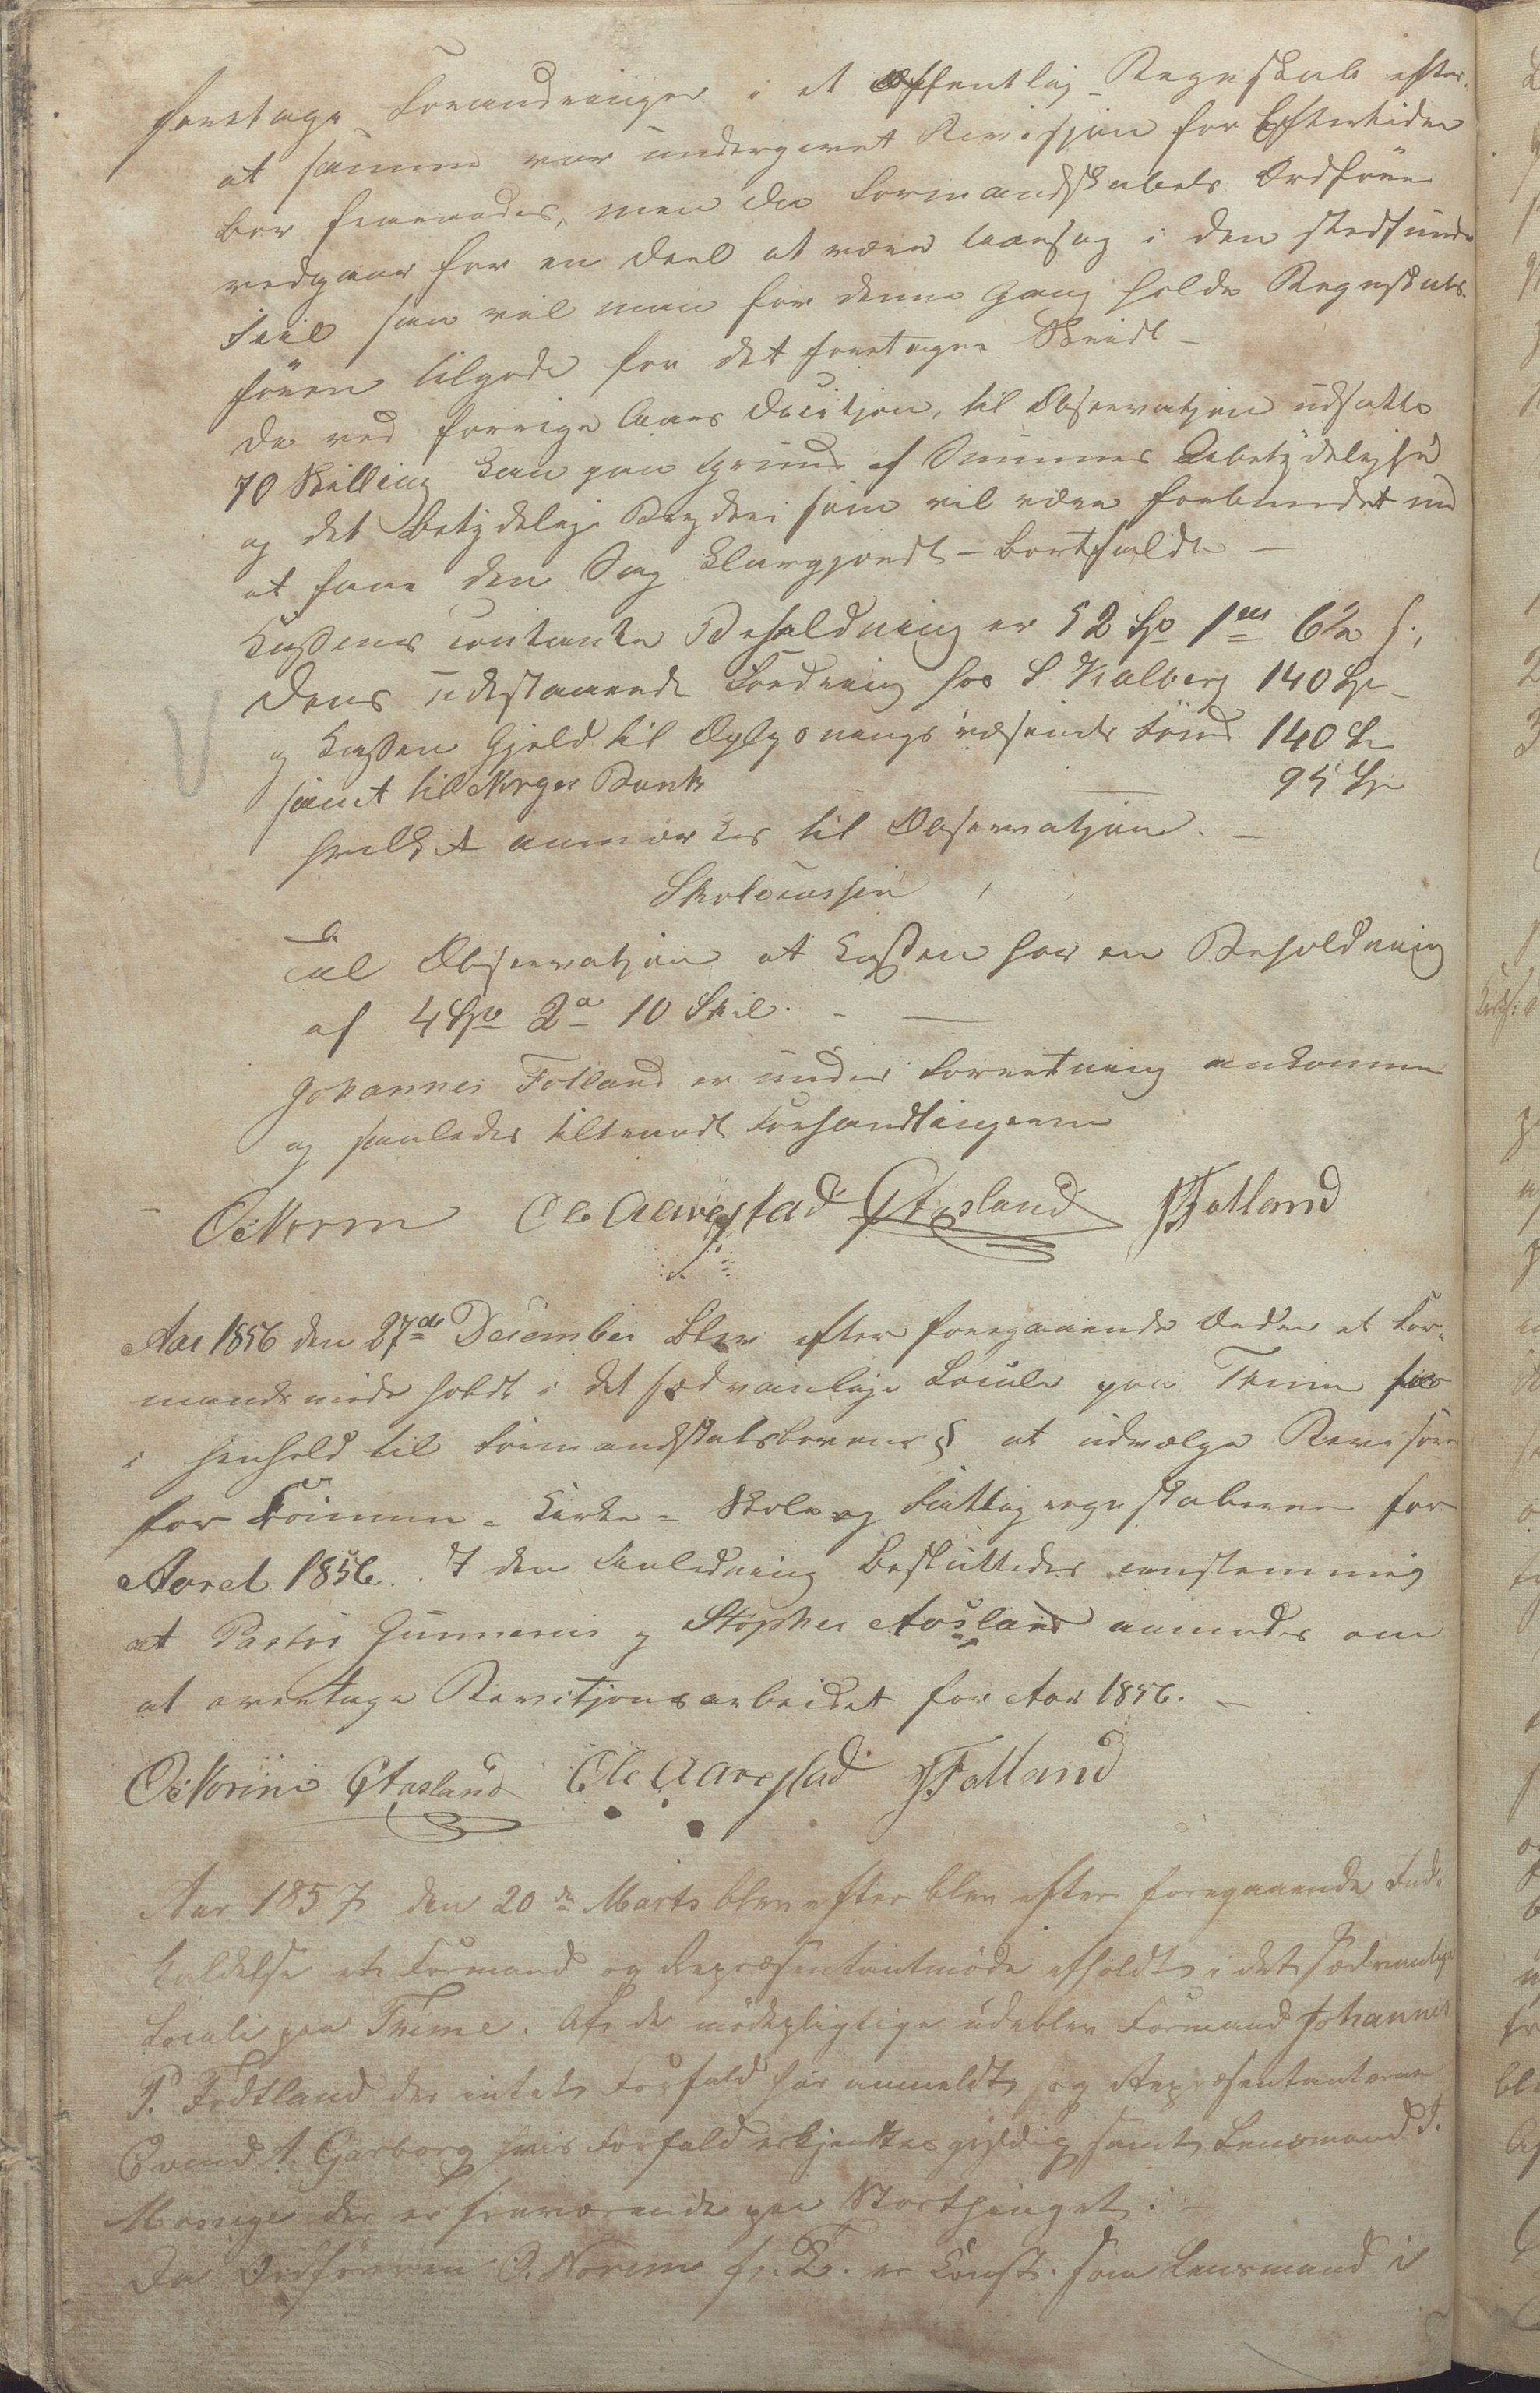 foretage Forandringer i et offentlig Regnskab efter
at samme var undergivet Revisjon for Eftertiden
bør fraraades, men da Formandskabets Ordfører
vedgaar for en Deel at være Aarsag i den stedfundne
Feil saa vil man for denne Gang holde Regnskabs-
føren tilgode for det foretagne Skridt -
De ved forrige Aars Decitjon, til Observatjon udsatte
70 Skilling kan paa Grund af Summens Ubetydelighed
og det Betydelige Bryderi som vil være forbundet med
at faae den Sag klargjordt - bortfalde -
Kassens contante Beholdning er 52 Spd 1 m 6½ s.,
Dens udestaaende Fordring hos S Kalberg 140 Sp -
og Kassen Gjeld til Oplysningsvæsenets Fond 140 Sp
samt til Norges Bank 95 Sp
hvilket anmærkes til Observatjon. -
Skolecassen
Til Observatjon at Kassen har en Beholdning
af 4 Spd 2 10 Skil. -
Johannes Fotland er under Forretning ankommen
og saaledes tiltraadt Forhandlingerne
O Norem Ole Aarestad G Aasland J Fotland
Aar 1856 den 27de December Blev efter foregaaende Orden et For-
mandsmøde holdt i det sædvanlige Locale paa Thime for
i Henhold til Formandskabslovens § at udvælge Revisorer
for Commun - Kirke - Skole og Fattigregnskaberne for
Aaret 1856. I den Anledning besluttedes eenstemmig
at Pastor Gunnerus og Stopher Aasland anmodes om
at overtage Revitjonsarbeidet for Aar 1856. -
O Norem G Aasland Ole Aarestad J Fotland
Aar 1857 den 20de Marts blev efter blev efter foregaaende Ind-
kaldelse et Formand og Repræsentantmøde afholdt i det sædvanlige
Locale paa Thime. Af de mødepligtige udeblev Formand Johannes
P. Fodtland der intet Forfald har anmeldt, og Repræsentanterne
Evend A. Garborg hvis Forfald erkjendtes gyldig samt Lensmand T.
Mossige der er fraværende paa Storthinget. -
Da Ordføreren O. Norem f. T. er Const. som Lensmand i